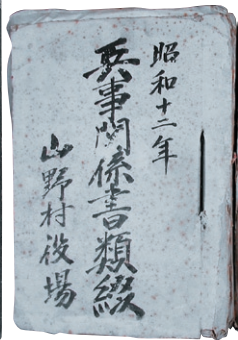 昭和十二年
兵事関係書類綴
山野村役場